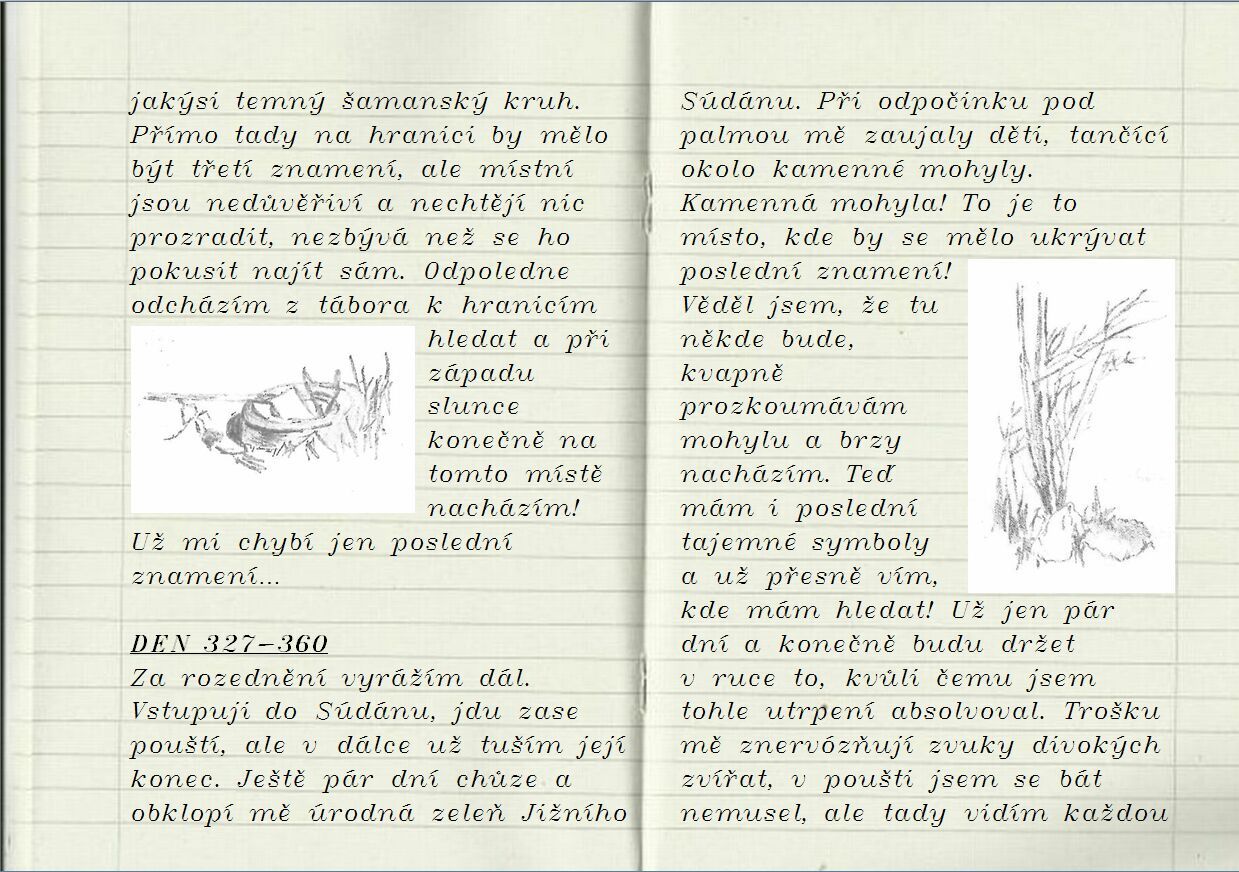 jakýsi temný šamanský kruh.
Přímo tady na hranici by mělo
být třetí znamení, ale místní
jsou nedůvěřiví a nechtějí nic
prozradit, nezbývá než se ho
pokusit najít sám. Odpoledne
odcházím z tábora k hranicím
hledat a při
západu
slunce
konečně na
tomto místě
nacházím!
Už mi chybí jen poslední
znamení...
DEN 327-360
Za rozednění vyrážím dál.
Vstupuji do Súdánu, jdu zase
pouští, ale v dálce už tuším její
konec. Ještě pár dní chůze a
obklopí mě úrodná zeleň Jižního
Súdánu. Při odpočinku pod
palmou mě zaujaly děti, tančící
okolo kamenné mohyly.
Kamenná mohyla! To je to
místo, kde by se mělo ukrývat
poslední znamení!
Věděl jsem, že tu
někde bude,
kvapně
prozkoumávám
mohylu a brzy
nacházím. Teď
mám i poslední
tajemné symboly
a už přesně vím,
kde mám hledat! Už jen pár
dní a konečně budu držet
v ruce to, kvůli čemu jsem
tohle utrpení absolvoval. Trošku
mě znervózňují zvuky divokých
zvířat, v poušti jsem se bát
nemusel, ale tady vidím každou